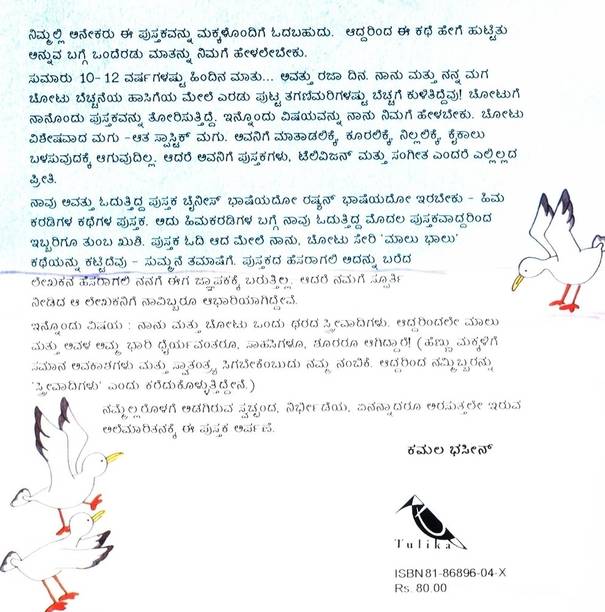 ನಿಮ್ಮಲ್ಲಿ ಅನೇಕರು ಈ ಪುಸ್ತಕವನ್ನು ಮಕ್ಕಳೊಂದಿಗೆ ಓದಬಹುದು. ಆದ್ದರಿಂದ ಈ ಕಥೆ ಹೇಗೆ ಹುಟ್ಟಿತು
ಅನ್ನುವ ಬಗ್ಗೆ ಒಂದೆರಡು ಮಾತನ್ನು ನಿಮಗೆ ಹೇಳಲೇಬೇಕು.
ಸುಮಾರು 10-12 ವರ್ಷಗಳಷ್ಟು ಹಿಂದಿನ ಮಾತು... ಅವತ್ತು ರಜಾ ದಿನ. ನಾನು ಮತ್ತು ನನ್ನ ಮಗ
ಚೋಟು ಬೆಚ್ಚನೆಯ ಹಾಸಿಗೆಯ ಮೇಲೆ ಎರಡು ಪುಟ್ಟ ತಗಣಿಮರಿಗಳಷ್ಟು ಬೆಚ್ಚಗೆ ಕುಳಿತಿದ್ದೆವು! ಚೋಟುಗೆ
ನಾನೊಂದು ಪುಸ್ತಕವನ್ನು ತೋರಿಸುತ್ತಿದ್ದೆ. ಇನ್ನೊಂದು ವಿಷಯವನ್ನು ನಾನು ನಿಮಗೆ ಹೇಳಬೇಕು. ಚೋಟು
ವಿಶೇಷವಾದ ಮಗು -ಆತ ಸ್ಪಾಸ್ಟಿಕ್ ಮಗು. ಅವನಿಗೆ ಮಾತಾಡಲಿಕ್ಕೆ, ಕೂರಲಿಕ್ಕೆ, ನಿಲ್ಲಲಿಕ್ಕೆ, ಕೈಕಾಲು
ಬಳಸುವುದಕ್ಕೆ ಆಗುವುದಿಲ್ಲ. ಆದರೆ ಅವನಿಗೆ ಪುಸ್ತಕಗಳು, ಟೆಲಿವಿಜನ್ ಮತ್ತು ಸಂಗೀತ ಎಂದರೆ ಎಲ್ಲಿಲ್ಲದ
ಪ್ರೀತಿ.
ನಾವು ಅವತ್ತು ಓದುತ್ತಿದ್ದ ಪುಸ್ತಕ ಚೈನೀಸ್ ಭಾಷೆಯದೋ ರಷ್ಯನ್ ಭಾಷೆಯದೋ ಇರಬೇಕು - ಹಿಮ
ಕರಡಿಗಳ ಕಥೆಗಳ ಪುಸ್ತಕ. ಅದು ಹಿಮಕರಡಿಗಳ ಬಗ್ಗೆ ನಾವು ಓದುತ್ತಿದ್ದ ಮೊದಲ ಪುಸ್ತಕವಾದ್ದರಿಂದ
ಇಬ್ಬರಿಗೂ ತುಂಬ ಖುಶಿ. ಪುಸ್ತಕ ಓದಿ ಆದ ಮೇಲೆ ನಾನು, ಚೋಟು ಸೇರಿ 'ಮಾಲು ಭಾಲು'
ಕಥೆಯನ್ನು ಕಟ್ಟಿದೆವು - ಸುಮ್ಮನೆ ತಮಾಷೆಗೆ. ಪುಸ್ತಕದ ಹೆಸರಾಗಲಿ ಅದನ್ನು ಬರೆದ
ಲೇಖಕನ ಹೆಸರಾಗಲಿ ನನಗೆ ಈಗ ಜ್ಞಾಪಕಕ್ಕೆ ಬರುತ್ತಿಲ್ಲ. ಆದರೆ ನಮಗೆ ಸ್ಫೂರ್ತಿ
ನೀಡಿದ ಆ ಲೇಖಕನಿಗೆ ನಾವಿಬ್ಬರೂ ಆಭಾರಿಯಾಗಿದ್ದೇವೆ.
ಇನ್ನೊಂದು ವಿಷಯ : ನಾನು ಮತ್ತು ಚೋಟು ಒಂದು ಥರದ ಸ್ತ್ರೀವಾದಿಗಳು. ಆದ್ದರಿಂದಲೇ ಮಾಲು
ಮತ್ತು ಅವಳ ಅಮ್ಮ ಭಾರಿ ಧೈರ್ಯವಂತರೂ, ಸಾಹಸಿಗಳೂ, ಶೂರರೂ ಆಗಿದ್ದಾರೆ! (ಹೆಣ್ಣು ಮಕ್ಕಳಿಗೆ
ಸಮಾನ ಅವಕಾಶಗಳು ಮತ್ತು ಸ್ವಾತಂತ್ರ್ಯ ಸಿಗಬೇಕೆಂಬುದು ನಮ್ಮ ನಂಬಿಕೆ. ಆದ್ದರಿಂದ ನಮ್ಮಿಬ್ಬರನ್ನು
'ಸ್ತ್ರೀವಾದಿಗಳು' ಎಂದು ಕರೆದುಕೊಳ್ಳುತ್ತಿದ್ದೇನೆ.)
ನಮ್ಮೆಲ್ಲರೊಳಗೆ ಅಡಗಿರುವ ಸ್ವಚ್ಛಂದ, ನಿರ್ಭೀತಿಯ, ಏನನ್ನಾದರೂ ಅರಸುತ್ತಲೇ ಇರುವ
ಅಲೆಮಾರಿತನಕ್ಕೆ ಈ ಪುಸ್ತಕ ಅರ್ಪಣೆ.
ಕಮಲ ಭಸೀನ್
Tulika
ISBN 81-86896-04-X
Rs. 80.00